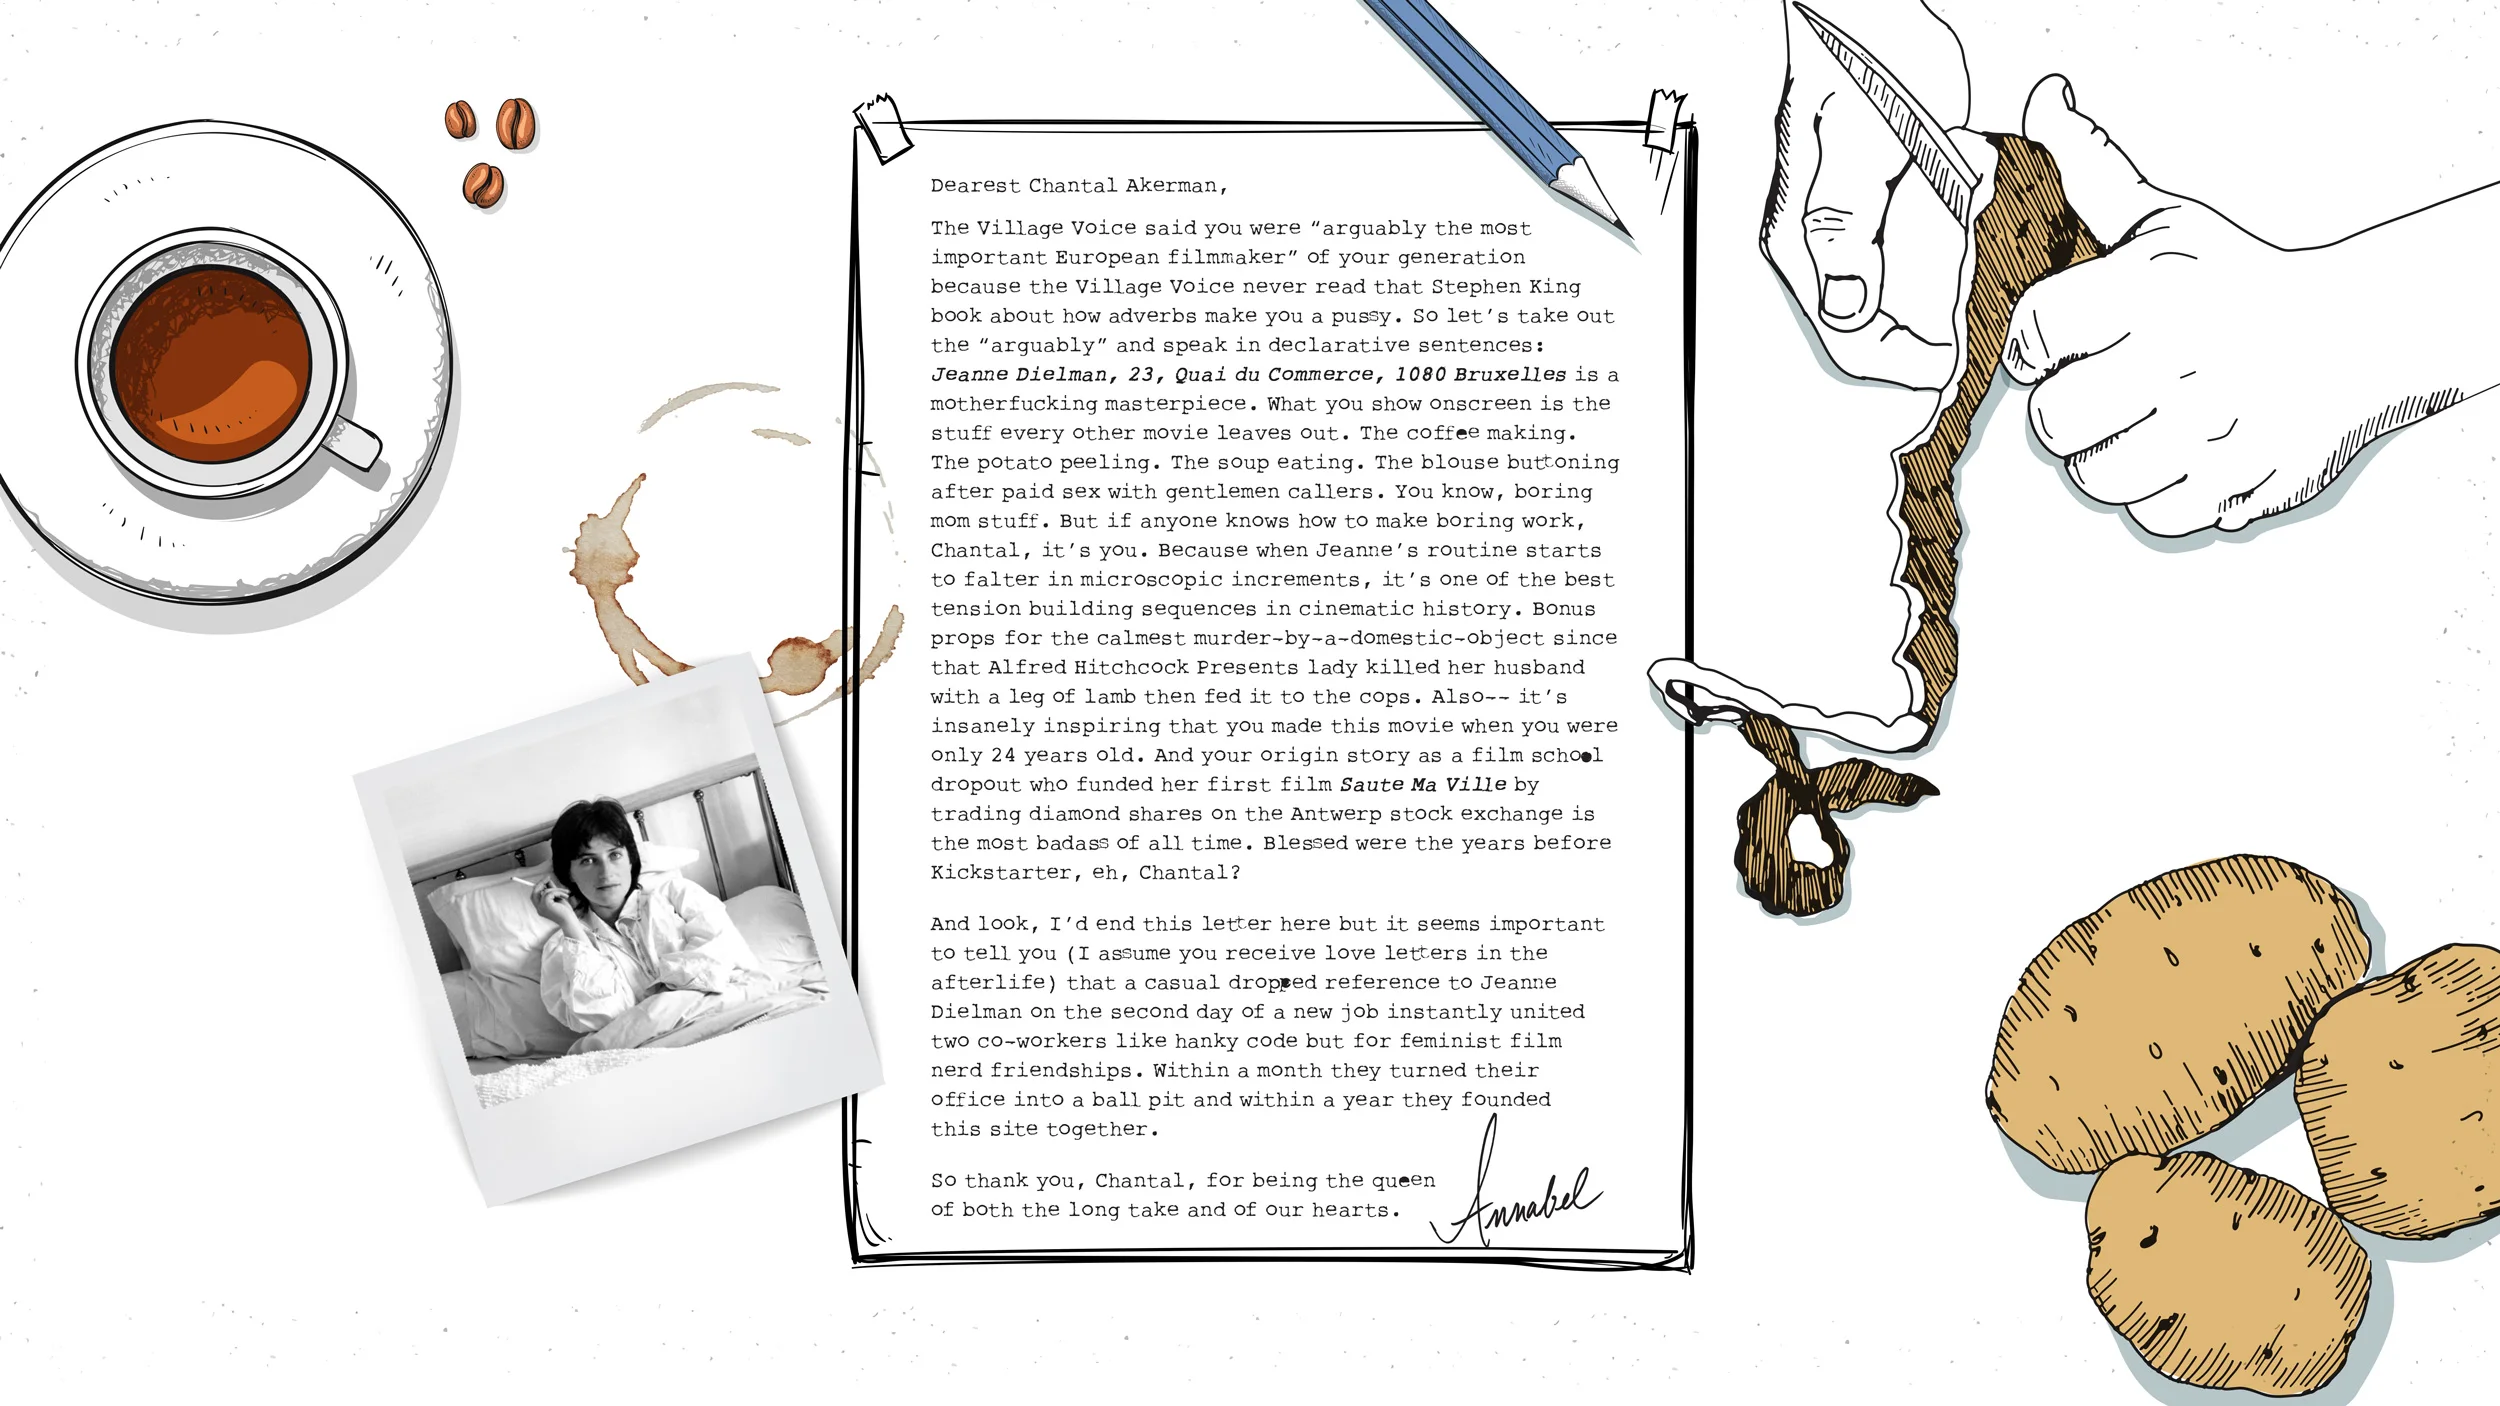 Dearest Chantal Akerman,
The Village Voice said you were “arguably the most
important European filmmaker” of your generation
because the Village Voice never read that Stephen King
book about how adverbs make you a pussy. So let’s take out
the “arguably” and speak in declarative sentences:
Jeanne Dielman, 23, Quai du Commerce, 1080 Bruxelles is a
motherfucking masterpiece. What you show onscreen is the
stuff every other movie leaves out. The coffee making.
The potato peeling. The soup eating. The blouse buttoning
after paid sex with gentlemen callers. You know, boring
mom stuff. But if anyone knows how to make boring work,
Chantal, it’s you. Because when Jeanne’s routine starts
to falter in microscopic increments, it’s one of the best
tension building sequences in cinematic history. Bonus
props for the calmest murder-by-a-domestic-object since
that Alfred Hitchcock Presents lady killed her husband
with a leg of lamb then fed it to the cops. Also-- it’s
insanely inspiring that you made this movie when you were
only 24 years old. And your origin story as a film school
dropout who funded her first film Saute Ma Ville by
trading diamond shares on the Antwerp stock exchange is
the most badass of all time. Blessed were the years before
Kickstarter, eh, Chantal?
And look, I’d end this letter here but it seems important
to tell you (I assume you receive love letters in the
afterlife) that a casual dropped reference to Jeanne
Dielman on the second day of a new job instantly united
two co-workers like hanky code but for feminist film
nerd friendships. Within a month they turned their
office into a ball pit and within a year they founded
this site together.
So thank you, Chantal, for being the queen
of both the long take and of our hearts.
Annabel